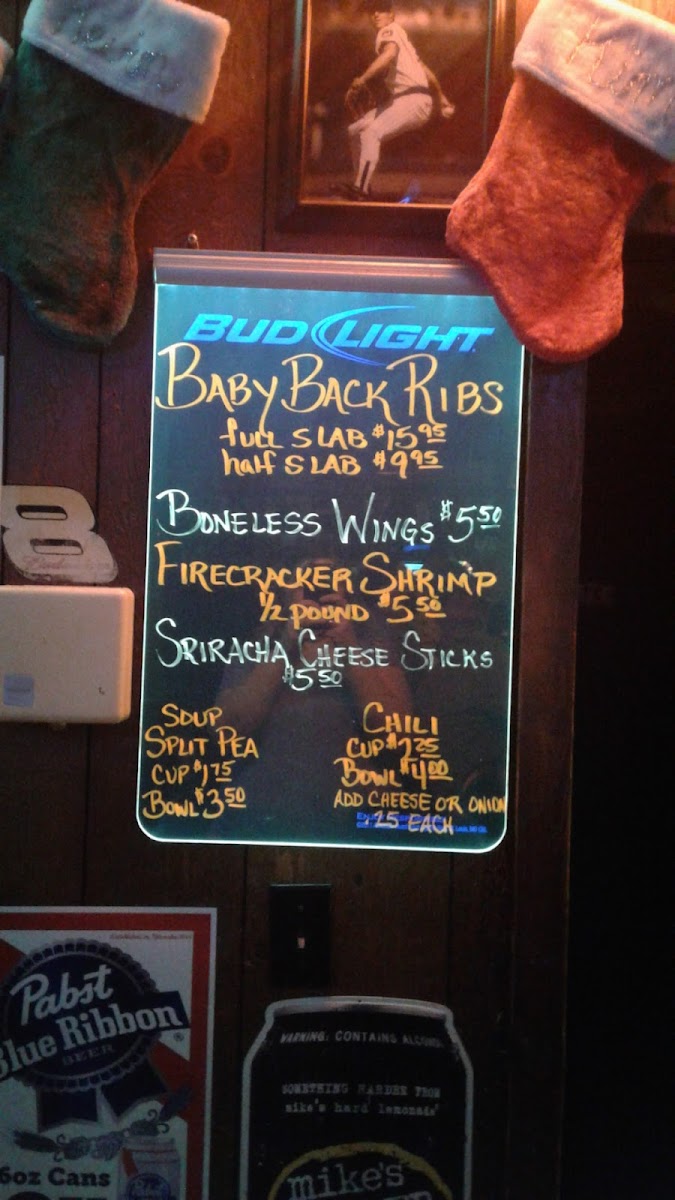 BUD LIGHT
BABY BACK RIBS
full SLAB $15.95
half SLAB $9.95
BONELESS WINGS $5.50
FIRECRACKER SHRIMP
1/2 POUND $5.50
SRIRACHA CHEESE STICKS
$5.50
SOUP
SPLIT PEA
CUP $1.75
BOWL $3.50
CHILI
CUP $2.25
BOWL $4.00
ADD CHEESE OR ONION
.25 EACH
8
Pabst
Blue Ribbon
BEER
6oz Cans
WARNING: CONTAINS ALCOHOL
SOMETHING HARDER FROM
mike's hard lemonade
mike's